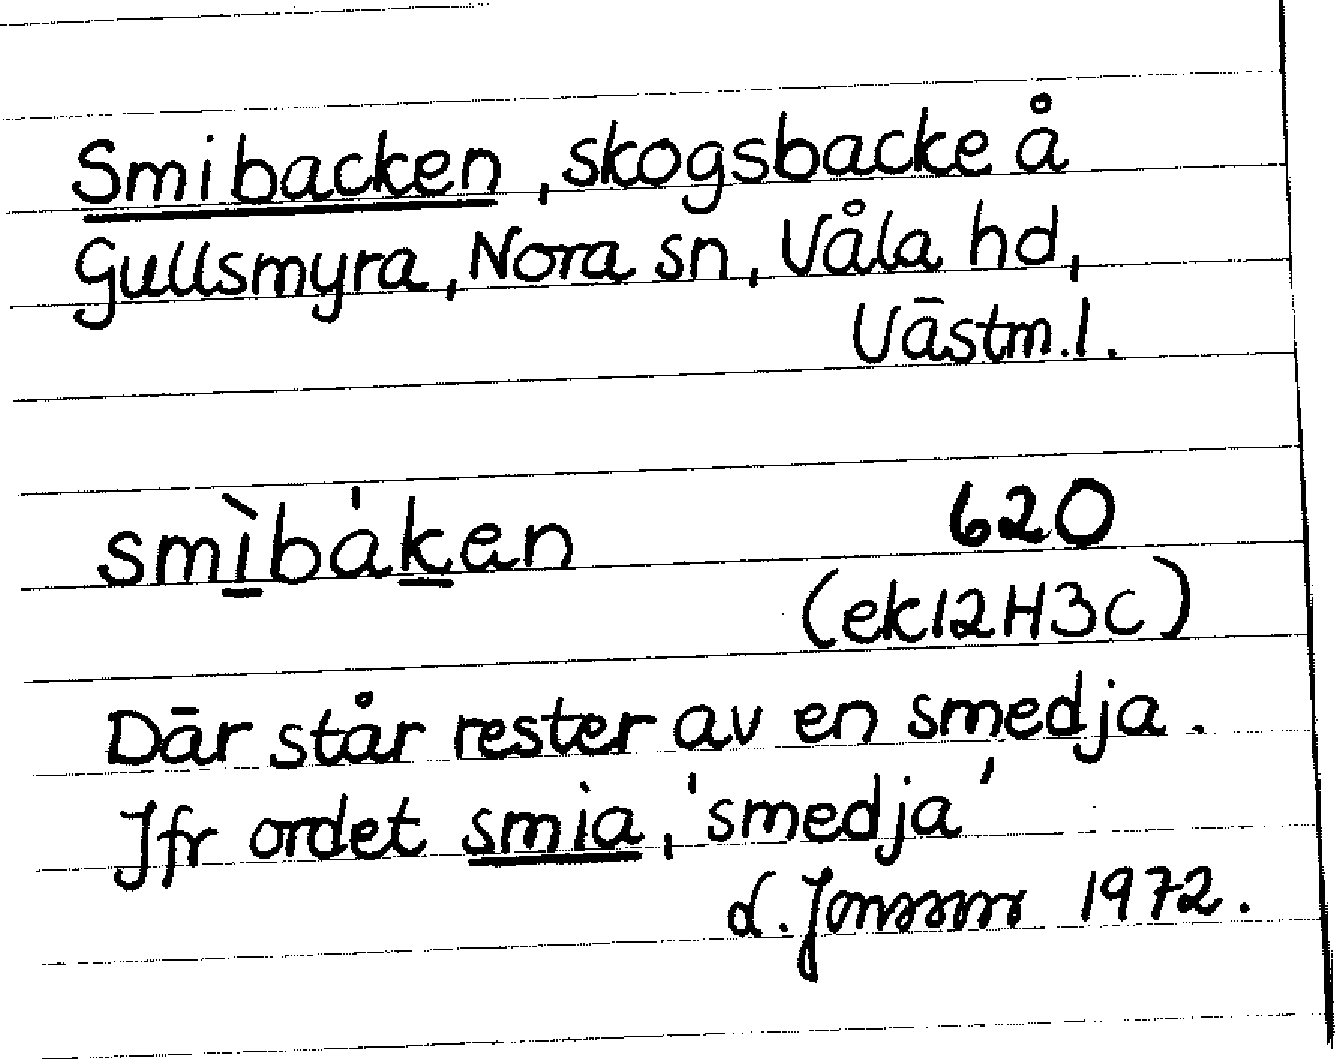 Smibacken, skogsbacke å
Gullsmyra, Nora sn, Våla hd,
Västm.l.
smìbàken 620
(ek12H3c)
Där står rester av en smedja.
Jfr ordet smia, 'smedja'
1972.